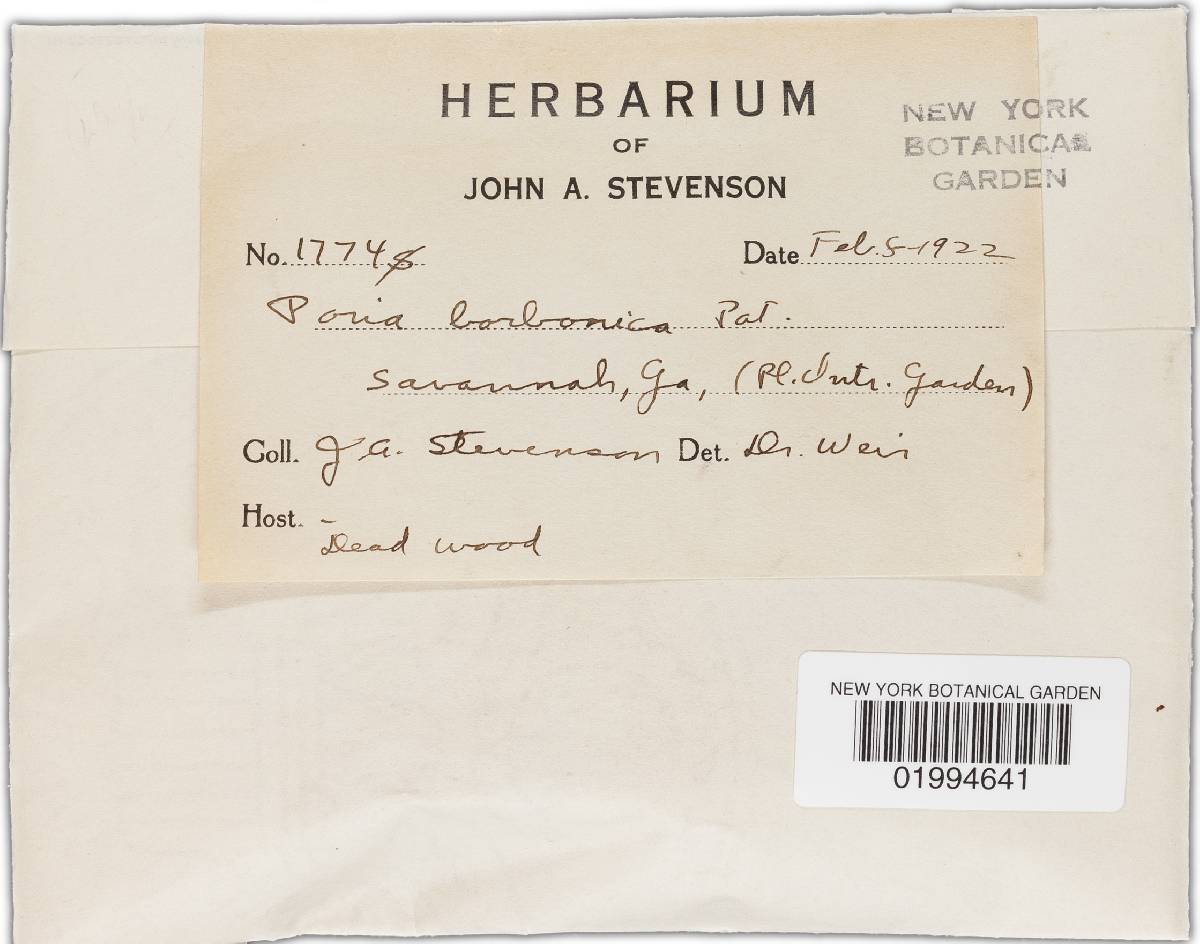 HERBARIUM
OF
JOHN A. STEVENSON
NEW YORK
BOTANICAL
GARDEN
No. 1774
Date Feb. 5-1922
Poria borbonica Pat.
Savannah, Ga, (Pl. Intr. Garden)
Coll. J. A. Stevenson Det. Dr. Weir
Host. Dead wood
NEW YORK BOTANICAL GARDEN
01994641